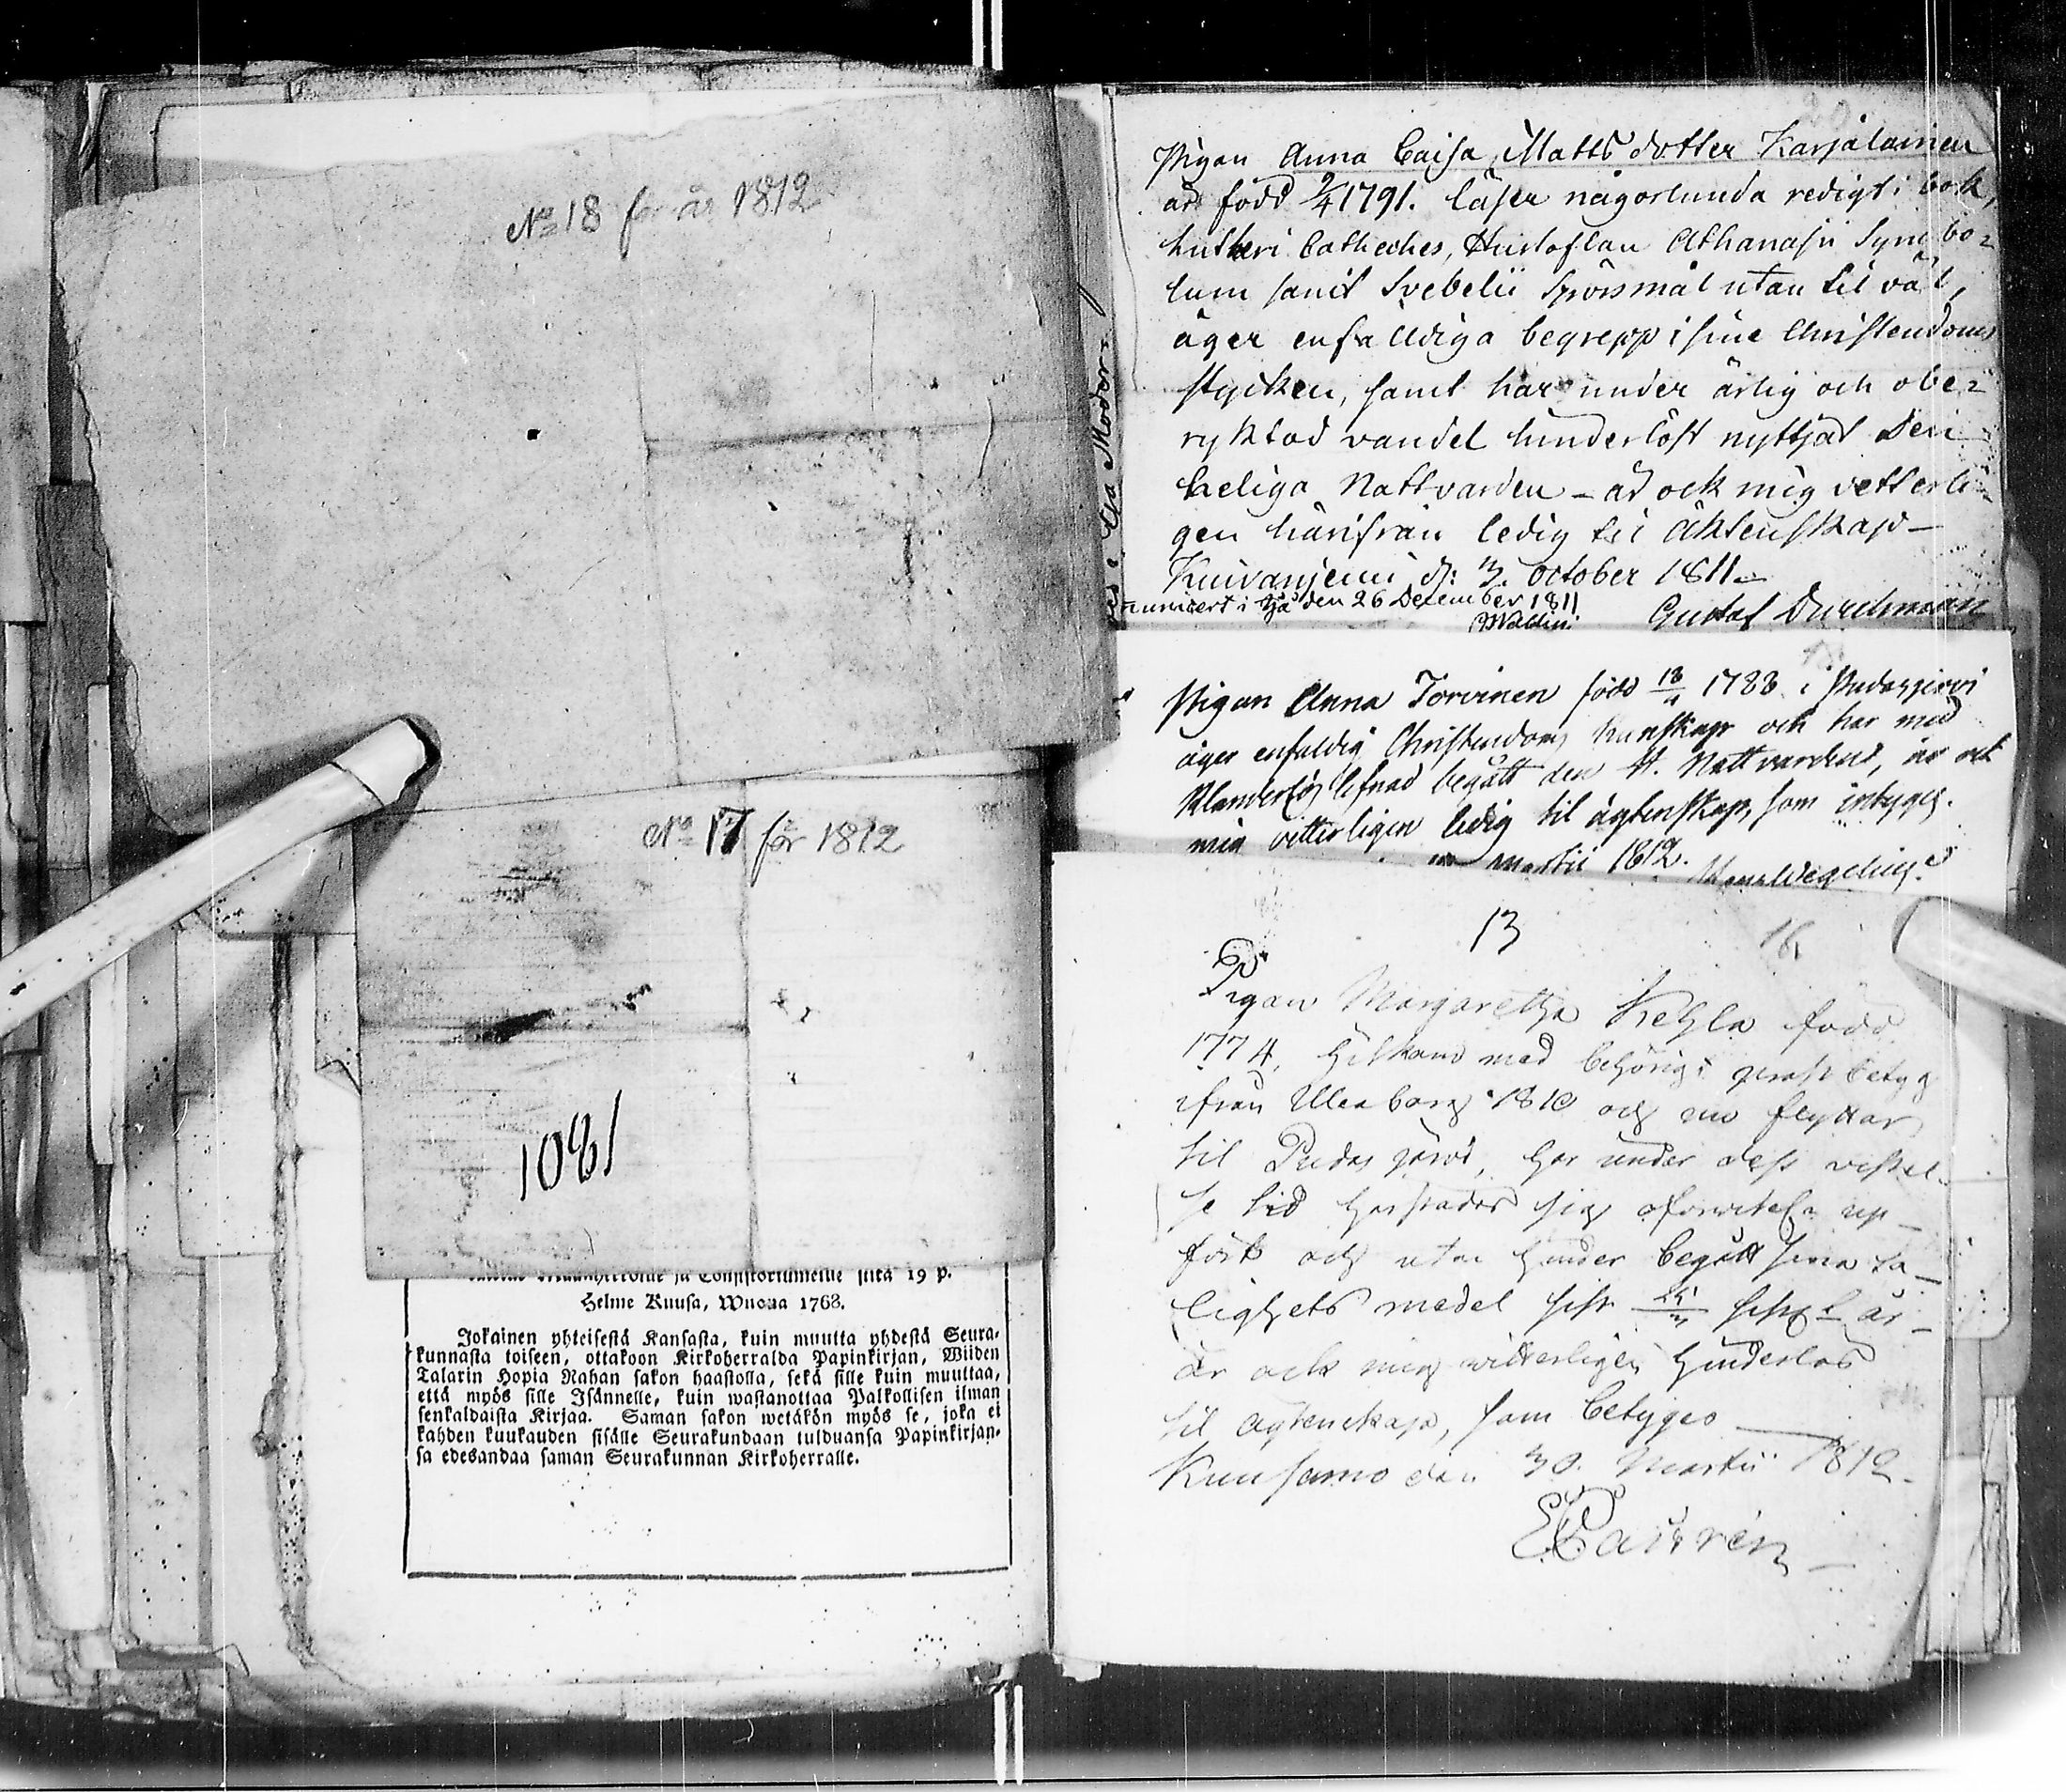 No 18 for år 1812
No 17 för 1812
1081
Consistoriumelle siitä 19 p.
Helme Kuusa, Wuonna 1763.
Jokainen yhteisestä Kansasta, kuin muutta yhdestä Seura-
kunnasta toiseen, ottakoon Kirkoherralda Papinkirjan, Wiiden
Talarin Hopia Rahan sakon haastolla, sekä sille kuin muuttaa,
että myös sille Isännelle, kuin wastanottaa Palkollisen ilman
senkaldaista Kirjaa. Saman sakon wetäkön myös se, joka ei
kahden kuukauden sisälle Seurakundaan tulduansa Papinkirjan-
sa edesandaa saman Seurakunnan Kirkoherralle.
20
Pigan Anna Caisa Matts dotter Karjalainen
är född 9/4 1791. läser någorlunda redigt i bok,
Lutheri Catheches, Hustaflan Athanasii Symbo-
lum samt Svebelii Spörsmål utan til väl,
äger enfalldiga begrepp i sine Christendoms
stycken, samt har under ärlig och obe-
ryktad vandel hinderlöst nyttjat Den
heliga Nattvarden - är ock mig vetterli-
gen härifrån ledig til äktenskap -
Kuivaniemi d: 3. October 1811
i Ijå den 26 December 1811
Gustaf Durchman
Pigan Anna Torvinen född 18 1788 i Pudasjervi
äger enfaldig Christendoms kunskap och har med
klanderlös lefnad begått den H. Nattvarden, är ock
mig vitterligen ledig til ägtenskap, som intyges.
martii 1812.
13
16.
Pigan Margaretha Kehla född
1774, hitkom med behörigt prest betyg
ifrån Uleaborg 1810 och nu flyttar
til Pudasjärvi, har under dess vistel-
se tid härstädes sig oförvitel. up-
fört och utan hinder begått sina sa-
lighets medel sist 25 sistl. år -
är ock mig vitterligen hinderlös
til ägtenskap, som betyges
Kuusamo den 30. Martii 1812.
E Castrén